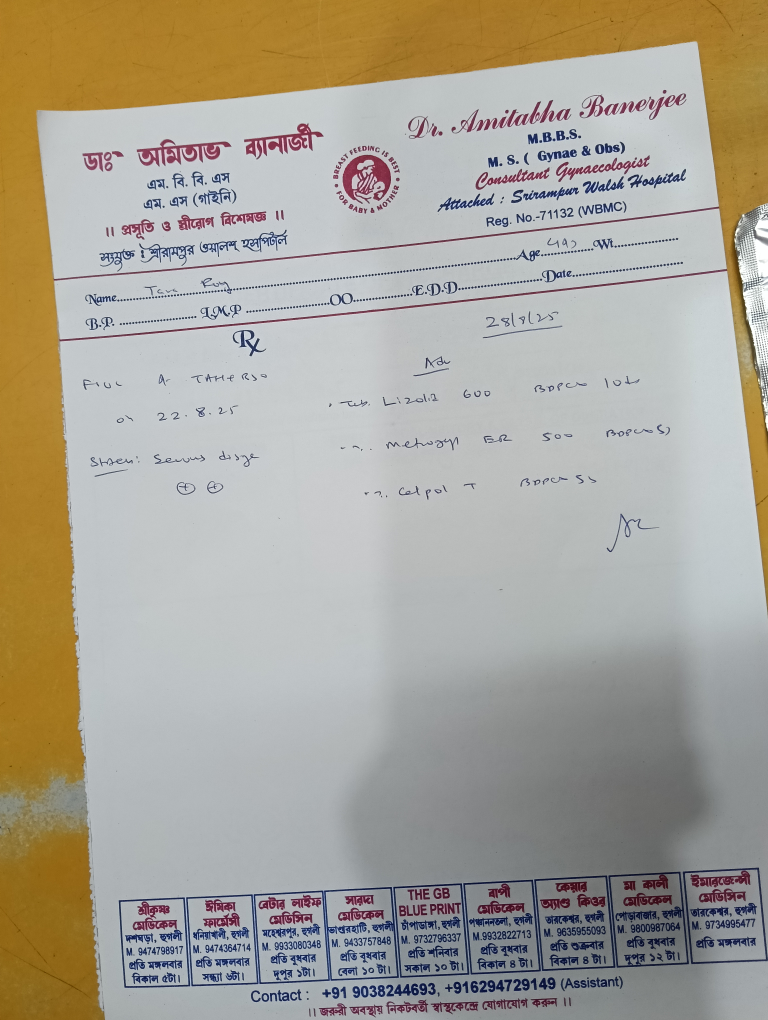 ডাঃ অমিতাভ ব্যানার্জী
এম. বি. বি. এস
এম. এস (গাইনি)
।। প্রসূতি ও স্ত্রীরোগ বিশেষজ্ঞ ।।
সংযুক্ত : শ্রীরামপুর ওয়ালশ হসপিটাল
BREAST FEEDING IS BEST
FOR BABY & MOTHER
Dr. Amitabha Banerjee
M.B.B.S.
M. S. ( Gynae & Obs)
Consultant Gynaecologist
Attached : Srirampur Walsh Hospital
Reg. No.-71132 (WBMC)
Name Age Wt.
B.P. L.M.P OO E.D.D Date
Rx
28/8/25
Adv
TAH + BSO
on 22.8.25
Tab. Lizolid 600 BDPC
Metrogyl ER 500
Calpol T BDPC
শ্রীকৃষ্ণ মেডিকেল
দশঘড়া, হুগলী
M. 9474798917
প্রতি মঙ্গলবার
বিকাল ৫টা।
ঈমিকা ফার্মেসী
ধনিয়াখালী, হুগলী
M. 9474364714
প্রতি মঙ্গলবার
সন্ধ্যা ৬টা।
বেটার লাইফ মেডিসিন
মহেশ্বরপুর, হুগলী
M. 9933080348
প্রতি বুধবার
দুপুর ১টা।
সারদা মেডিকেল
ভাণ্ডারহাটি, হুগলী
M. 9433757848
প্রতি বুধবার
বেলা ১০ টা।
THE GB BLUE PRINT
চাঁপাডাঙ্গা, হুগলী
M. 9732796337
প্রতি শনিবার
সকাল ১০ টা।
বাপী মেডিকেল
পঞ্চাননতলা, হুগলী
M.9932822713
প্রতি বুধবার
বিকাল ৪ টা।
কেয়ার অ্যাণ্ড কিওর
তারকেশ্বর, হুগলী
M. 9635955093
প্রতি শুক্রবার
বিকাল ৪ টা।
মা কালী মেডিকেল
পোড়াবাজার, হুগলী
M. 9800987064
প্রতি বুধবার
দুপুর ১২ টা।
ইমারজেন্সী মেডিসিন
তারকেশ্বর, হুগলী
M. 9734995477
প্রতি মঙ্গলবার
Contact : +91 9038244693, +916294729149 (Assistant)
।। জরুরী অবস্থায় নিকটবর্তী স্বাস্থ্যকেন্দ্রে যোগাযোগ করুন ।।